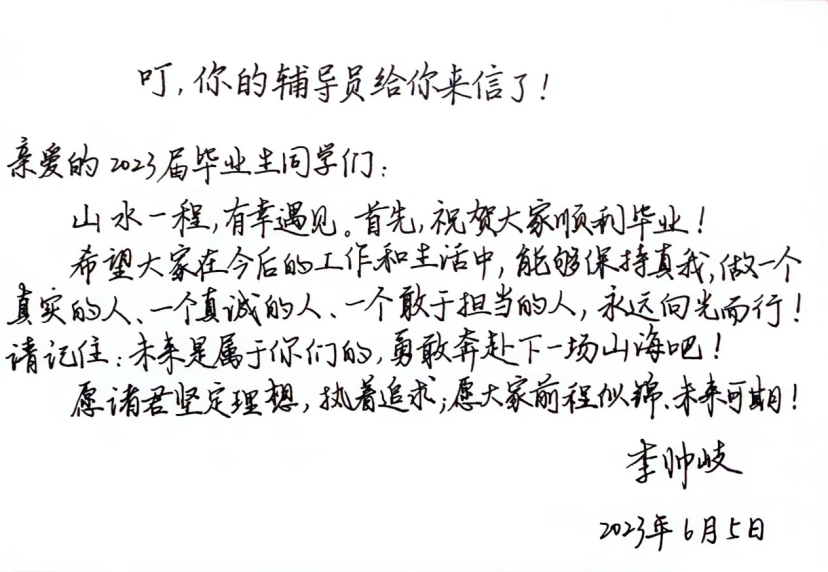 叮,你的辅导员给你来信了!
亲爱的2023届毕业生同学们:
山水一程,有幸遇见。首先,祝贺大家顺利毕业!
希望大家在今后的工作和生活中,能够保持真我,做一个
真实的人、一个真诚的人、一个敢于担当的人,永远向光而行!
请记住:未来是属于你们的,勇敢奔赴下一场山海吧!
愿诸君坚定理想,执着追求;愿大家前程似锦、未来可期!
李帅岐
2023年6月5日